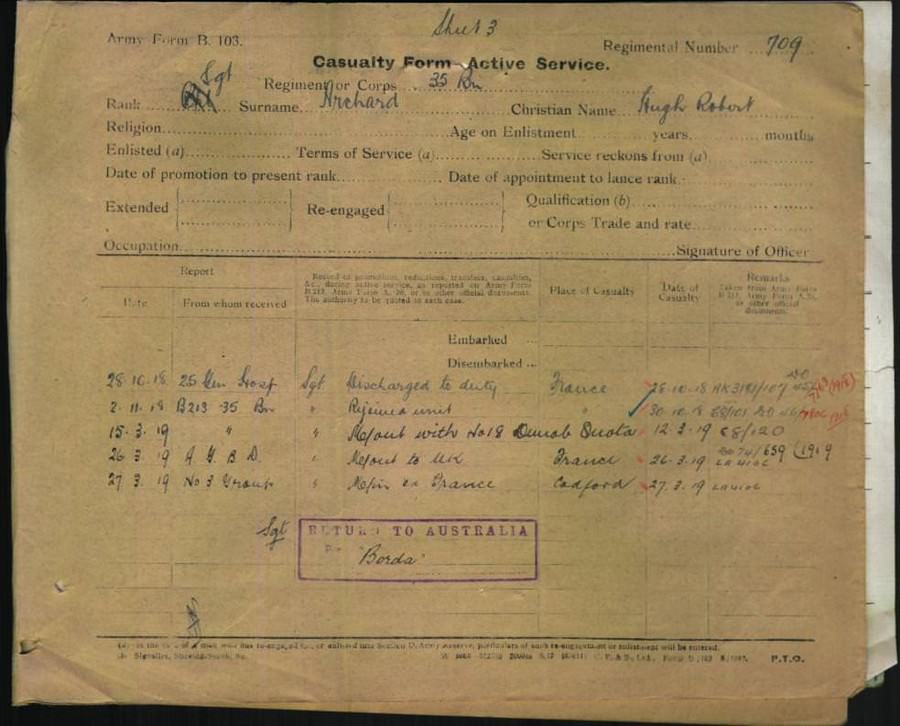 Sheet 3
Army Form B. 103.
Regimental Number 709
Casualty Form—Active Service.
Regiment or Corps 35 Bn
Rank Sgt Surname Archard Christian Name Hugh Robert
Religion Age on Enlistment years months
Enlisted (a) Terms of Service (a) Service reckons from (a)
Date of promotion to present rank Date of appointment to lance rank
Extended Re-engaged Qualification (b)
or Corps Trade and rate
Occupation Signature of Officer
Report
Date From whom received
Record of promotions, reductions, transfers, casualties,
&c., during active service, as reported on Army Form
B.213, Army Form A. 36, or in other official documents.
The authority to be quoted in each case.
Place of Casualty
Date of
Casualty
Remarks
Taken from Army Form
B 213, Army Form A.36,
or other official
documents.
Embarked
Disembarked
28.10.18 25 Gen Hosp Sgt Discharged to duty France 28.10.18
2.11.18 B213 35 Bn " Rejoined unit " 30.10.18
15.3.19 " " M/out with No 18 Demob Quota 12.3.19 68/120
26.3.19 A.G.B.D. " M/out to UK France 26.3.19
27.3.19 No 3 Group " M/in ex France Codford 27.3.19
Sgt RETURN TO AUSTRALIA
Per "Borda"
P.T.O.